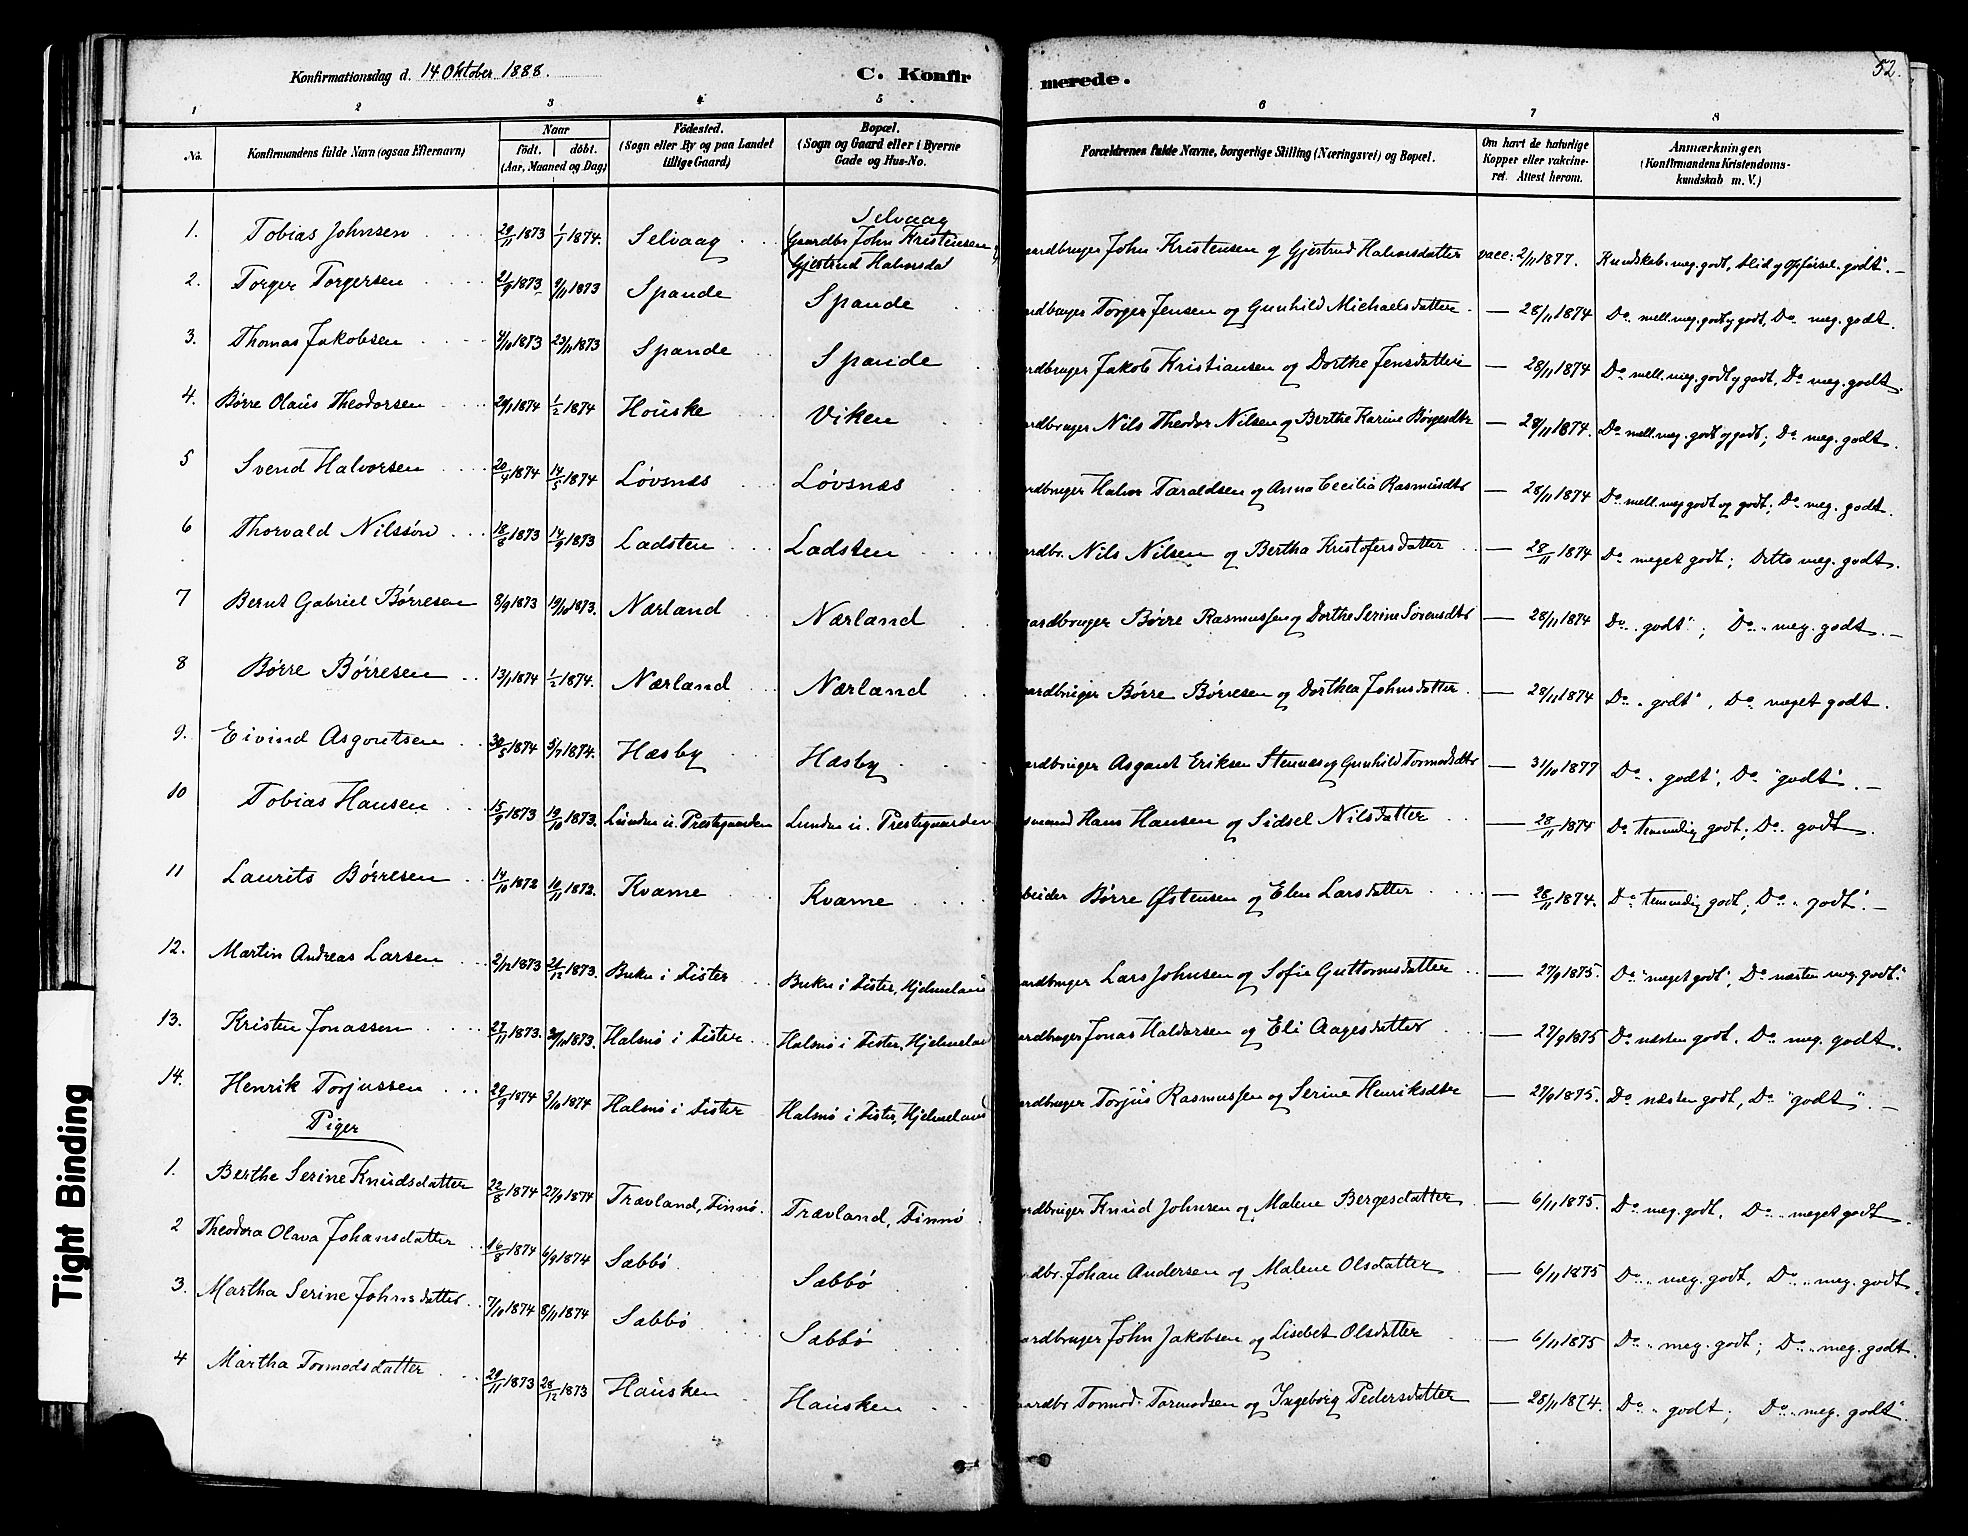 Konfirmationsdag d. 14 Oktober 1888.
C. Konfirmerede.
52.
1 2 3 4 5 6 7 8
No. Konfirmandens fulde Navn (ogsaa Efternavn) Naar født. døbt. (Aar, Maaned og Dag) Fødested. (Sogn eller By og paa Landet tillige Gaard) Bopæl. (Sogn og Gaard eller i Byerne Gade og Hus-No. Forældrenes fulde Navne, borgerlige Stilling (Næringsvei) og Bopæl. Om havt de naturlige Kopper eller vakcineret. Attest herom. Anmærkninger. (Konfirmandens Kristendomskundskab m. V.)
1. Tobias Johnsen 29/11 1873 1/1 1874. Selvaag Selvaag Gaardbr John Kristensen og Gjertrud Halvorsda aardbruger John Kristensen og Gjertrud Halvorsdatter vacc: 2/11 1877. Kundskab. meg. godt, Flid og Opførsel. godt. —
2. Torger Torgersen 21/9 1873 9/11 1873 Spande Spande ardbruger Torger Jensen og Gunhild Michaelsdatter — 28/11 1874 Do mell. meg. godt og godt, Do meg. godt.
3. Thomas Jakobsen 4/10 1873 23/11 1873 Spande Spande ardbruger Jakob Kristiansen og Dorthe Jensdatter — 28/11 1874 Do mell. meg. godt og godt, Do meg. godt
4. Børre Olaus Theodorsen 20/1 1874 1/2 1874 Houske Viken ardbruger Nils Theodor Nilsen og Berthe Karine Børgesdtr — 28/11 1874. Do mell. meg. godt og godt; Do meg. godt
5 Svend Halvorsen 20/4 1874 14/5 1874 Løvsnes Løvsnes ardbruger Halvor Taraldsen og Anna Cecilia Rasmusdtr — 28/11 1874 Do mell. meg godt og godt; Do meg. godt.
6 Thorvald Nilssøn 18/8 1873 14/9 1873 Ladsten Ladsten ardbr. Nils Nilsen og Bertha Kristofersdatter — 28/11 1874 Do meget godt; Ditto meg. godt.
7 Bernt Gabriel Børresen 8/9 1873 19/10 1873. Nærland Nærland aardbruger Børre Rasmussen og Dorthe Serine Sørensdtr — 28/11 1874 Do godt; Do meg. godt. —
8 Børre Børresen 13/1 1874 1/2 1874. Nærland Nærland ardbruger Børre Børresen og Dorthea Johnsdatter — 28/11 1874 Do godt, Do meget godt.
9. Eivind Asgoutsen 30/5 1874 5/7 1874. Hæsby Hæsby ardbruger Asgaut Eriksen Stennes og Gunhild Tormodsdtr — 31/10 1877 Do godt, Do godt. —
10 Tobias Hansen 15/9 1873 19/10 1873. Lunden u. Prestegaarden Lunden u. Prestegaarden smand Hans Hansen og Sidsel Nilsdatter — 28/11 1874 Do temmelig godt; Do godt.
11 Laurits Børresen 14/10 1872 10/11 1872. Kvame Kvame beider Børre Østensen og Elen Larsdatter — 28/11 1874. Do temmelig godt; Do godt. —
12. Martin Andreas Larsen 2/12 1873 21/12 1873. Buku i Fister Buku i Fister, Hjelmeland ardbruger Lars Johnsen og Sofie Guttormsdatter — 27/9 1875. Do meget godt, Do næsten meg. godt.
13. Kristen Jonassen 27/11 1873. 30/11 1873. Halsnø i Fister Halsnø i Fister, Hjelmeland ardbruger Jonas Haldorsen og Eli Aagesdatter — 27/9 1875 Do næsten godt. Do meg. godt.
14. Henrik Torjussen 29/9 1874 2/10 1874 Halsnø i Fister Halsnø i Fister, Hjelmeland ardbruger Torjus Rasmussen og Serine Henriksdtr — 27/9 1875. Do næsten godt, Do godt. —
Piger
1. Berthe Serine Knudsdatter 22/8 1874 27/9 1874 Trævland, Finnø. Trævland, Finnø ardbruger Knud Johnsen og Malene Bergesdatter — 6/11 1875. Do meg. godt, Do meget godt.
2 Theodora Olava Johansdatter 16/8 1874 6/9 1874 Sæbbø Sæbbø rdbr. Johan Andersen og Malene Olsdatter — 6/11 1875 Do meg. godt, Do meg. godt.
3. Martha Serine Johnsdatter 7/10 1874 8/11 1874 Sæbbø Sæbbø ardbruger John Jakobsen og Lisebet Olsdatter — 6/11 1875 Do meg. godt; Do meg. godt.
4 Martha Tormodsdatter 29/11 1873 28/12 1873 Hausken Hausken aardbr Tormod Tormodsen og Ingeborg Pedersdatter — 28/11 1874. Do godt; Do meg. godt.
Tight Binding